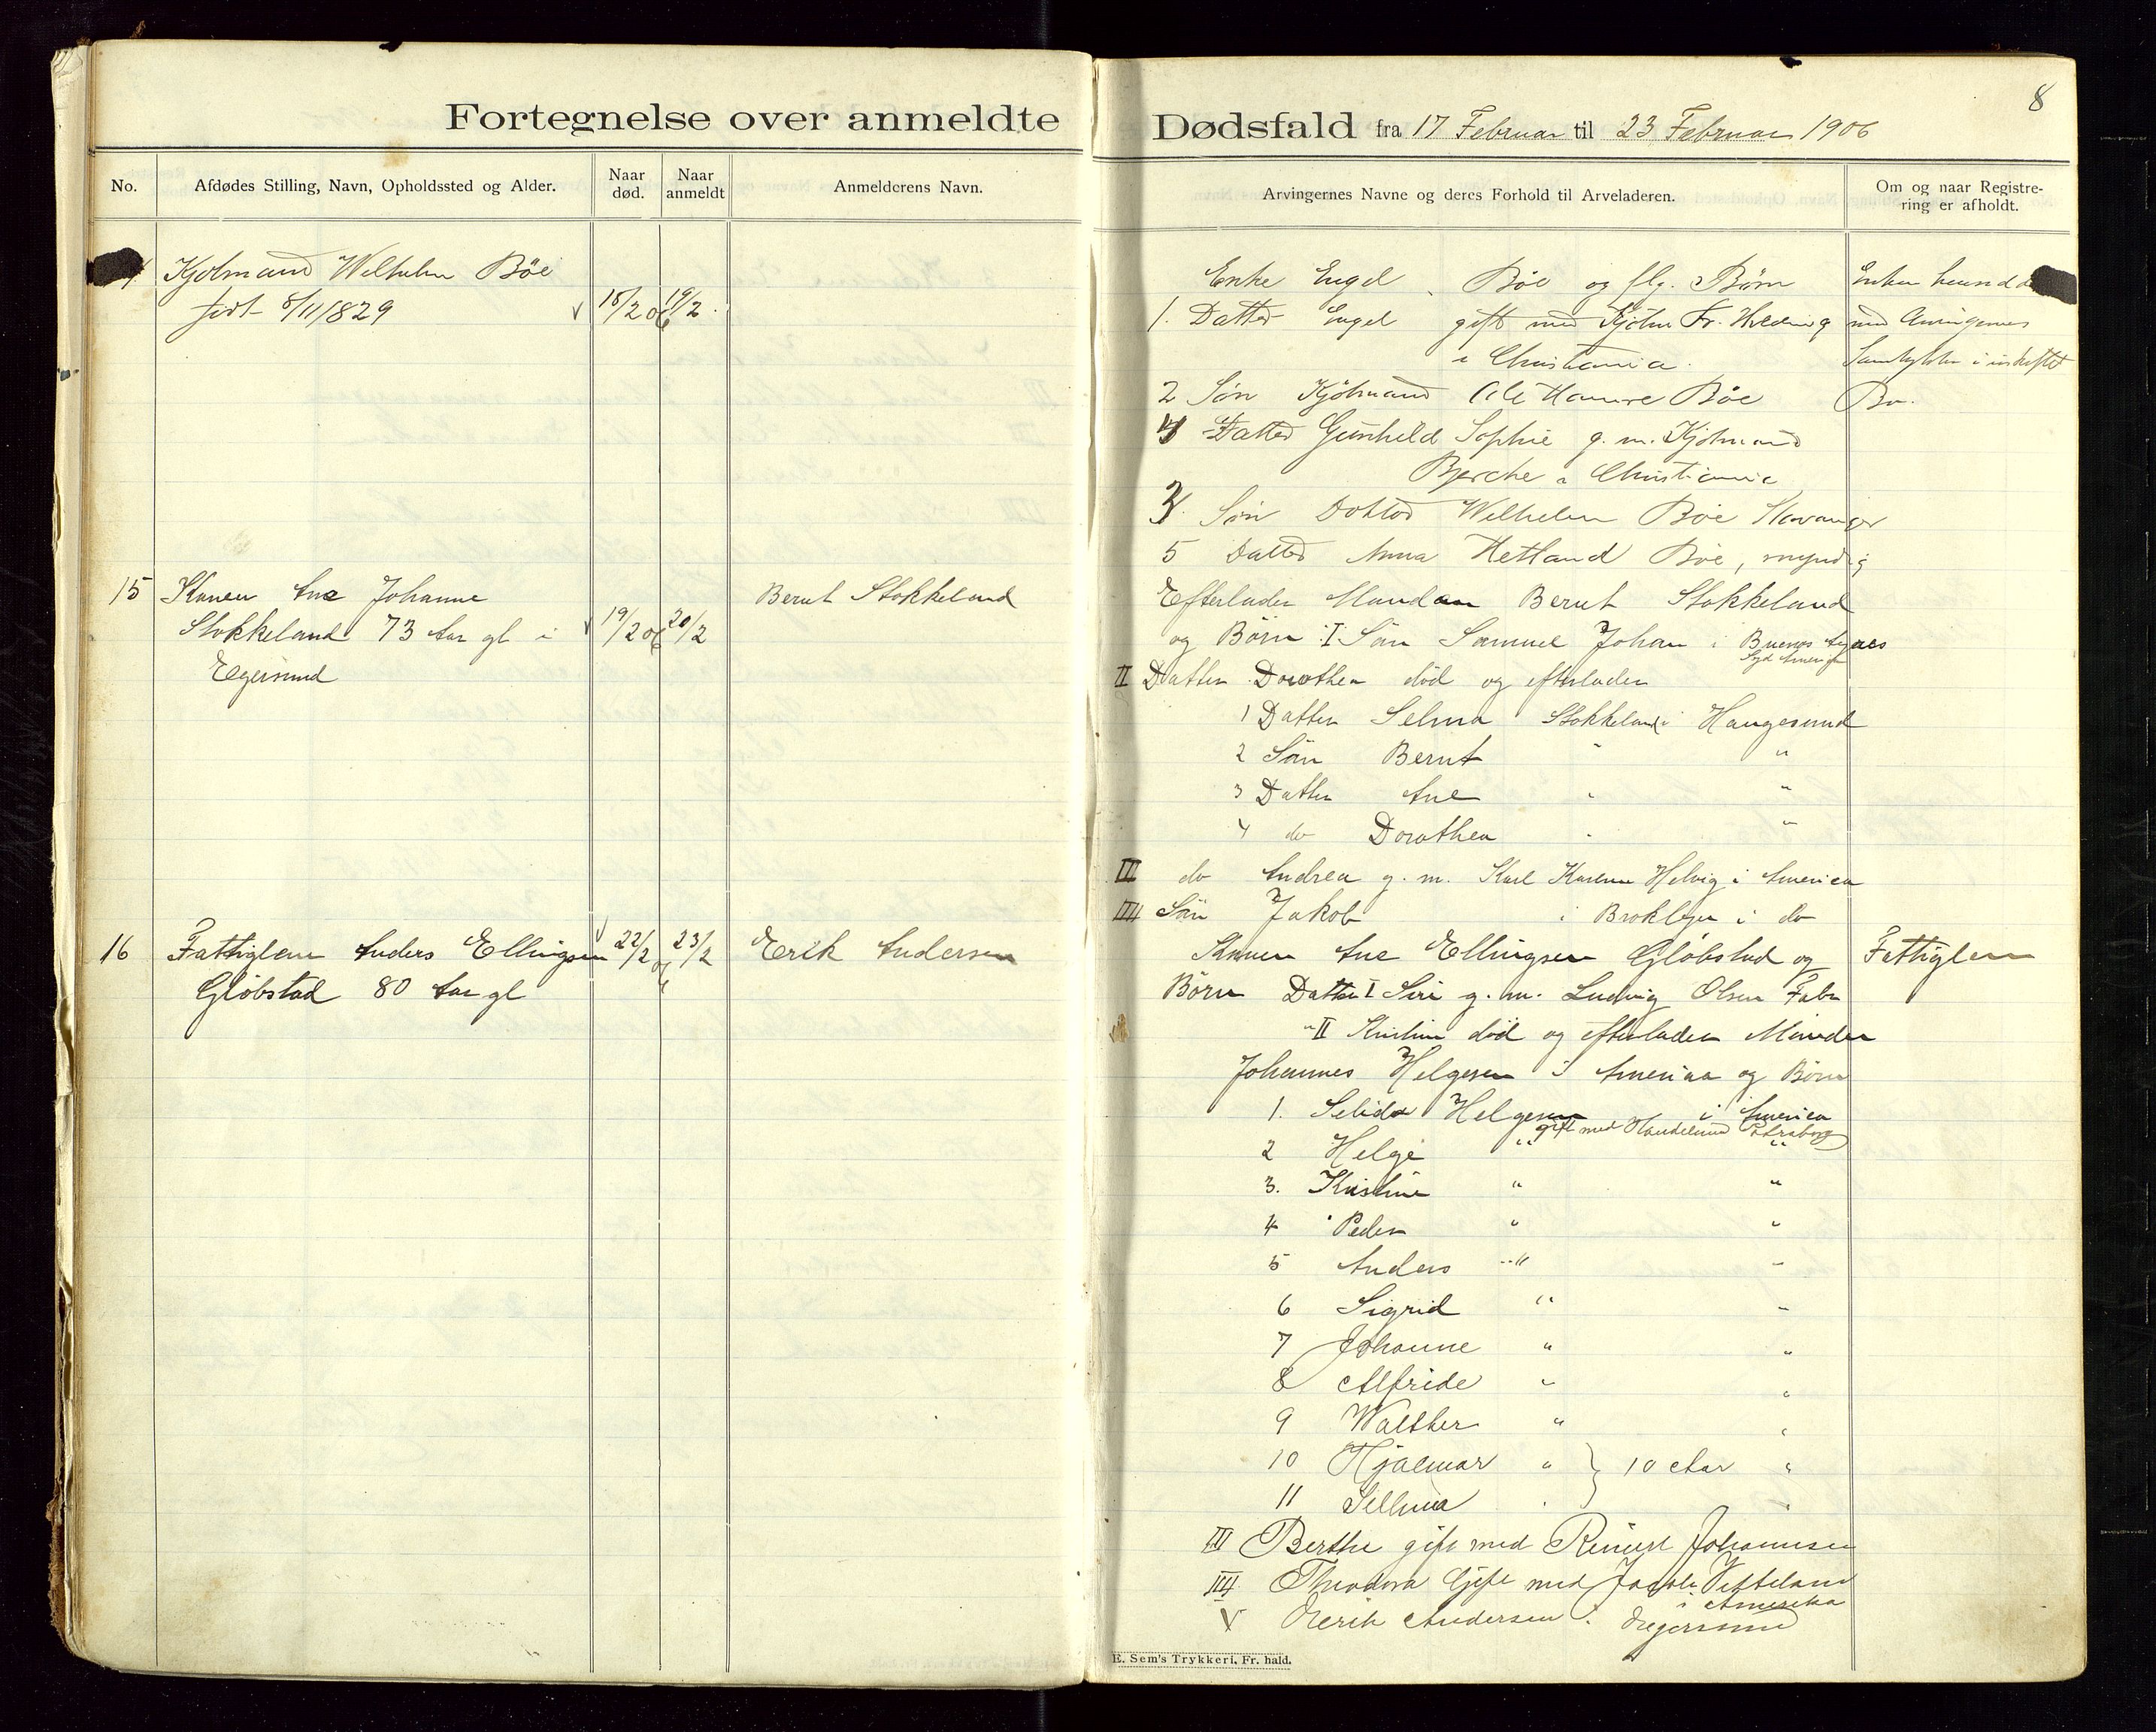 8
Fortegnelse over anmeldte Dødsfald fra 17 Februar til 23 Februar 1906
No.
Afdødes Stilling, Navn, Opholdssted og Alder.
Naar død.
Naar anmeldt
Anmelderens Navn.
Arvingernes Navne og deres Forhold til Arveladeren.
Om og naar Registre-
ring er afholdt.
Kjøbmand Wilhelm Böe
født 8/11 1829
18/2 06
19/2
Enke Engel Böe og flg. Børn
1. Datter Engel gift med Kjøbm Fr.
i Christiania.
2 Søn Kjøbmand Ole Böe
4 Datter Gunhild Sophie g. m. Kjøbmand
Bjercke i Christiania
3. Søn Doktor Wilhelm Böe Stavanger
5 Datter Anna Hetland Böe, myndig
Enken
med Arvingernes
Samtykke i uskiftet
Bo.
15 Konen Ane Johanne
Stokkeland 73 Aar gl i
Egersund
19/2 06
20/2
Bernt Stokkeland
Efterlader Manden Bernt Stokkeland
og Børn I Søn Samuel Johan i Buenos Ayres
Syd Amerika
II Datter Dorothea död og efterlader
1 Datter Selma Stokkeland i Haugesund
2 Søn Bernt " "
3 Datter Ane " "
4 do Dorothea " "
III do Andrea g. m. Karl Helvig i America
IIII Sön Jakob i Broklyn i do
16 Fattiglem Anders Ellingsen
Glöbstad 80 Aar gl
22/2 06
23/2
Erik Andersen
Konen Ane Ellingsen Glöbstad og
Börn Datter I Siri g. m. Ludvig Olsen
" II Kristine död og efterlader Manden
Johannes Helgesen i America og Börn
1. Helgesen i America
gift med
2 Helge " "
3. Kristine " "
4 Peder " "
5 Anders " "
6 Sigrid " "
7 Johanne " "
8 Alfride " "
9 Walther " "
10 Hjalmar " } 10 Aar "
11 Sellma " "
III Berthe gift med Reinert Johannesen
IIII Theodora Gift med Jacob
i Amerika
V Eerik Andersen i Eegersund
Fattiglem
E. Sem's Trykkeri, Fr. hald.